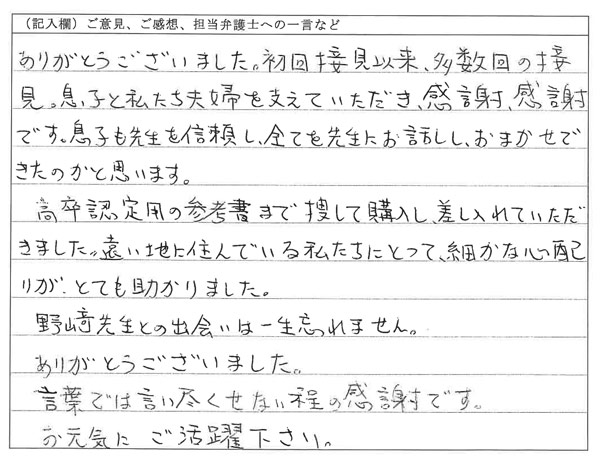 （記入欄）ご意見、ご感想、担当弁護士への一言など
ありがとうございました。初回接見以来、多数回の接
見。息子と私たち夫婦を支えていただき、感謝、感謝
です。息子も先生を信頼し、全てを先生にお話しし、おまかせで
きたのかと思います。
高卒認定用の参考書まで捜して購入し、差し入れていただ
きました。遠い地に住んでいる私たちにとって、細かな心配
りが、とても助かりました。
野崎先生との出会いは一生忘れません。
ありがとうございました。
言葉では言い尽くせない程の感謝です。
お元気に ご活躍下さい。